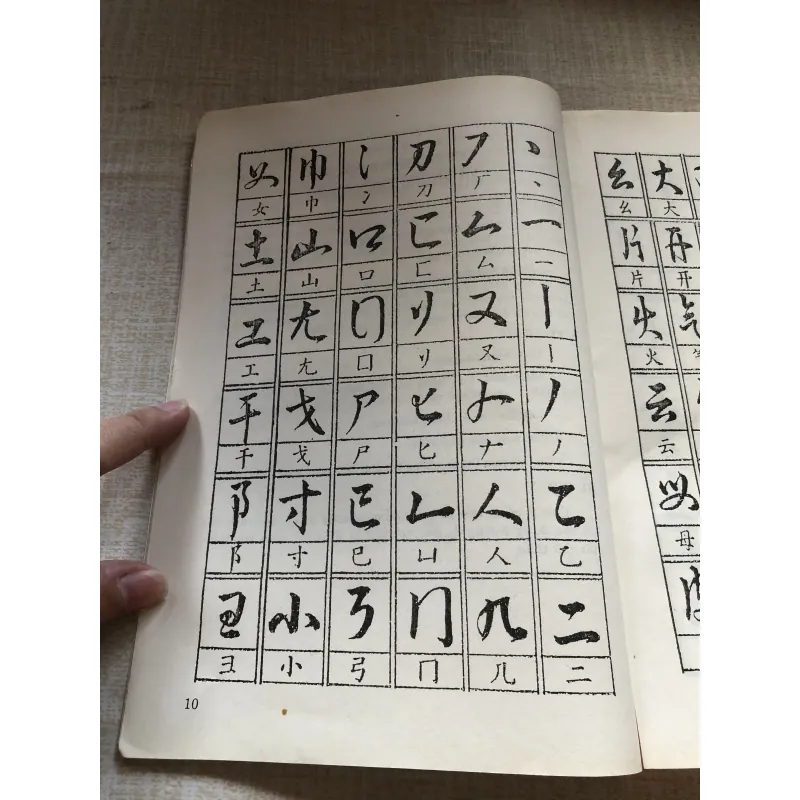 丶 丶 一 一 丨 丨 丿 丿 乙 乙 二 二
厂 厂 厶 厶 又 又 𠂇 𠂇 人 人 几 几
刀 刀 匚 匚 刂 刂 匕 匕 凵 凵 冂 冂
冫 冫 口 口 囗 囗 尸 尸 巳 巳 弓 弓
巾 巾 山 山 尢 尢 戈 戈 寸 寸 小 小
女 女 土 土 工 工 干 干 阝 阝 彐 彐
10
大 大 开 开 气
幺 幺 片 片 火 火 云 云 母 母